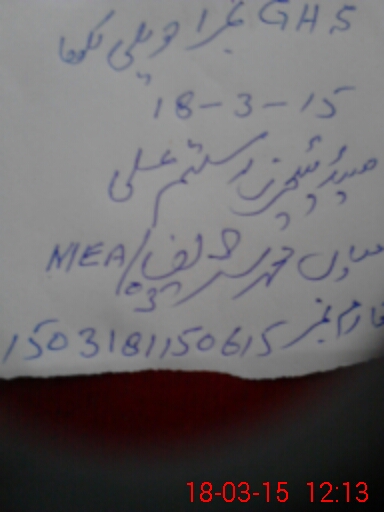 GHS نمبر 1 حویلی لکھا
18-3-15
ہیڈ ٹیچر رستم علی
محمد شریف / MEA
03
فارم نمبر 1503181150615
18-03-15 12:13